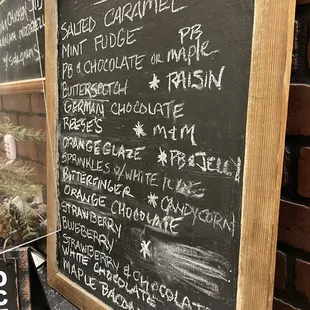 SALTED CARAMEL
MINT FUDGE
PB & CHOCOLATE OR PB MAPLE
BUTTERSCOTCH * RAISIN
GERMAN CHOCOLATE
REESE'S * M&M
ORANGE GLAZE * PB & JELLY
SPRINKLES W/ WHITE ICING
BUTTERFINGER * CANDYCORN
ORANGE CHOCOLATE
STRAWBERRY
BLUEBERRY *
STRAWBERRY & CHOCOLATE
WHITE CHOCOLATE
MAPLE BACON